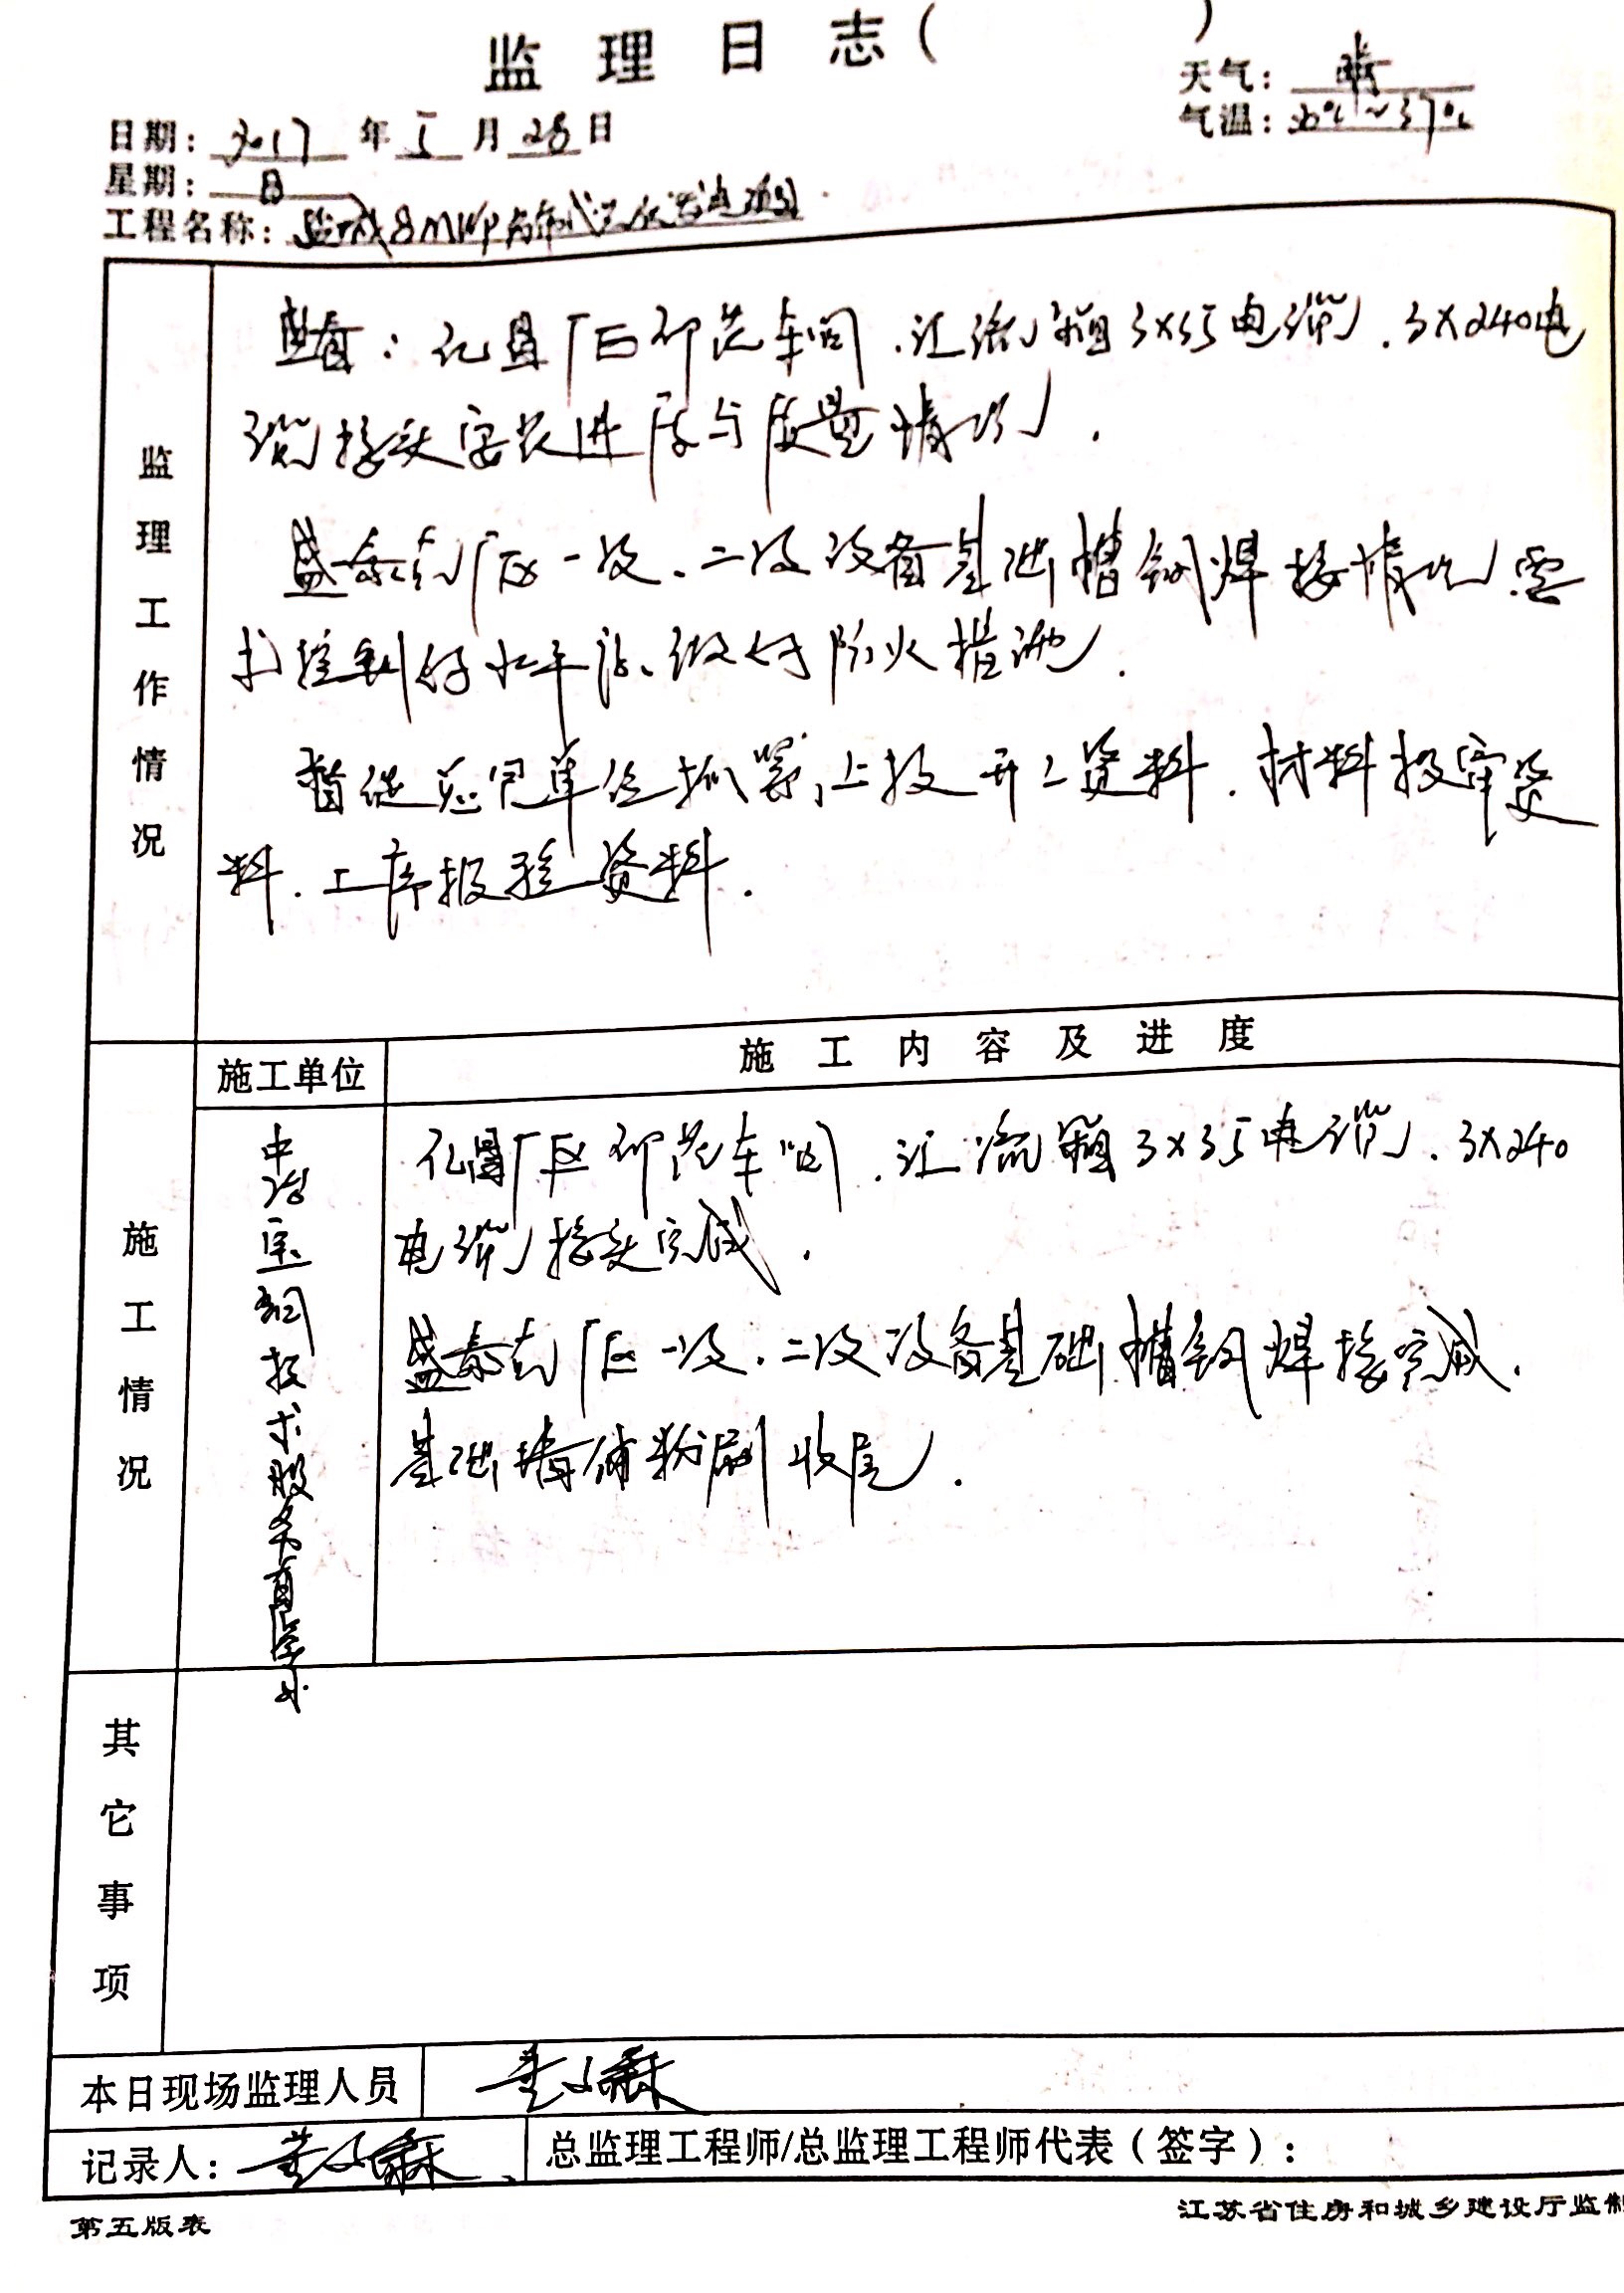 监理日志（ ）
天气：晴
日期：2017年5月28日
气温：20℃~37℃
星期：日
工程名称：盐城8MWP分布式光伏发电项目
监理工作情况
查看：亿昌厂区印花车间.汇流箱3×35电缆.3×240电
缆接头安装进度与质量情况.
盛泰南厂区一设、二设设备基础槽钢焊接情况.要
求控制好水平度、做好防火措施.
督促总包单位抓紧上报开工资料.材料报审资
料.工序报验资料.
施工情况
施工单位
施工内容及进度
中 技术股份有限公司
亿昌厂区印花车间.汇流箱3×35电缆.3×240
电缆接头完成.
盛泰南厂区一设.二设设备基础槽钢焊接完成.
基础 粉刷收尾.
其它事项
本日现场监理人员
记录人：
总监理工程师/总监理工程师代表（签字）：
第五版表
江苏省住房和城乡建设厅监制